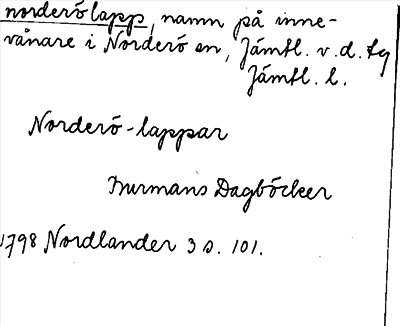 norderölapp, namn på inne-
vånare i Norderö sn, Jämtl. v. d. tg
Jämtl. l.
Norderö-lappar
Burmans Dagböcker
1798 Nordlander 3 s. 101.